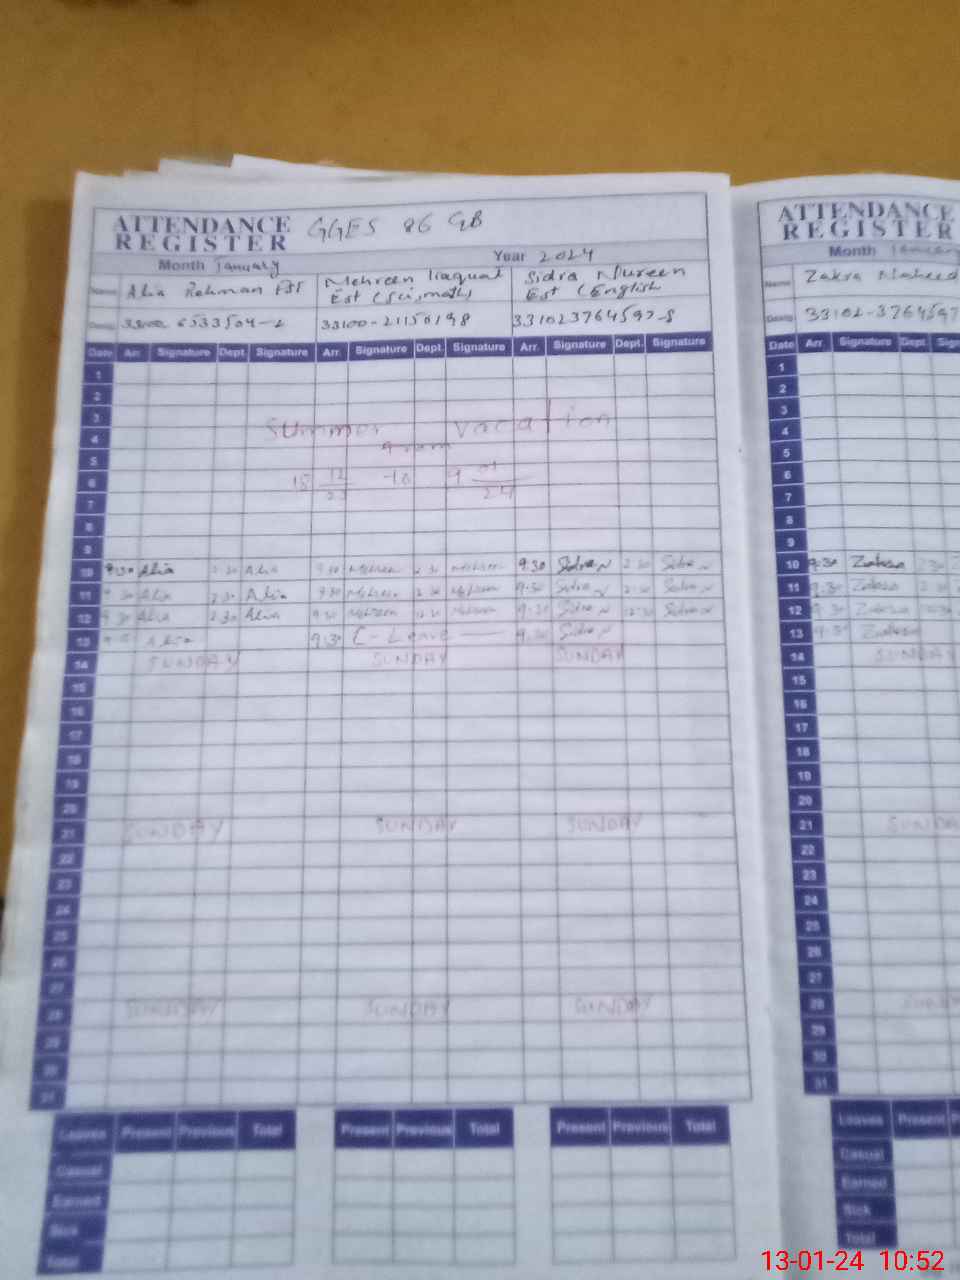 ATTENDANCE REGISTER GGES 86 GB
Month January Year 2024
Name Alia Rehman PST Mehreen Liaquat Est (Sci, math) Sidra Nureen Est (English
Desig: 33100-21150198 331023764597-8
Date Arr. Signature Dept. Signature Arr. Signature Dept. Signature Arr. Signature Dept. Signature
1
2
3
Summer vacation
4
from
5
6
18 12 23 -to 9 01 24
7
8
9
10 9:30 Alia 2:30 Alia 9:30 Mehreen 2:30 Mehreen 9:30 Sidra N 2:30 Sidra N
11 9:30 Alia 2:30 Alia 9:30 Mehreen 2:30 Mehreen 9:30 Sidra N 2:30 Sidra N
12 9:30 Alia Alia 9:30 Mehreen 12:30 Mehreen 9:30 Sidra N 12:30 Sidra N
13 Alia 9:30 C-Leave 9:30 Sidra N
14 SUNDAY SUNDAY SUNDAY
15
16
17
18
19
20
21 SUNDAY SUNDAY SUNDAY
22
23
24
25
26
27
28 SUNDAY SUNDAY SUNDAY
29
30
31
Leaves Present Previous Total Present Previous Total Present Previous Total
Casual
Earned
Sick
Total
ATTENDANCE
REGISTER
Month January
Name Zakra Naheed
Desig: 33102-3764597
Date Arr. Signature Dept.
1
2
3
4
5
6
7
8
9
10 9:30 Zakra 2:30
11 9:30 Zakra 2:30
12 9:30 Zakra
13 9:30 Zakra
14 SUNDAY
15
16
17
18
19
20
21 SUNDAY
22
23
24
25
26
27
28
29
30
31
Leaves Present
Casual
Earned
Sick
Total
13-01-24 10:52